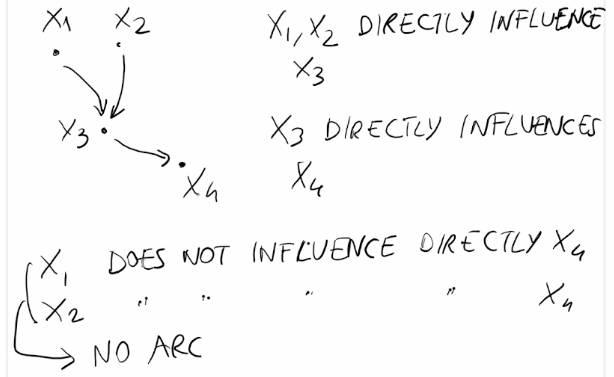 X1 X2
X1, X2 DIRECTLY INFLUENCE
X3
X3
X3 DIRECTLY INFLUENCES
X4
X4
X1 DOES NOT INFLUENCE DIRECTLY X4
X2 " " " " X4
NO ARC